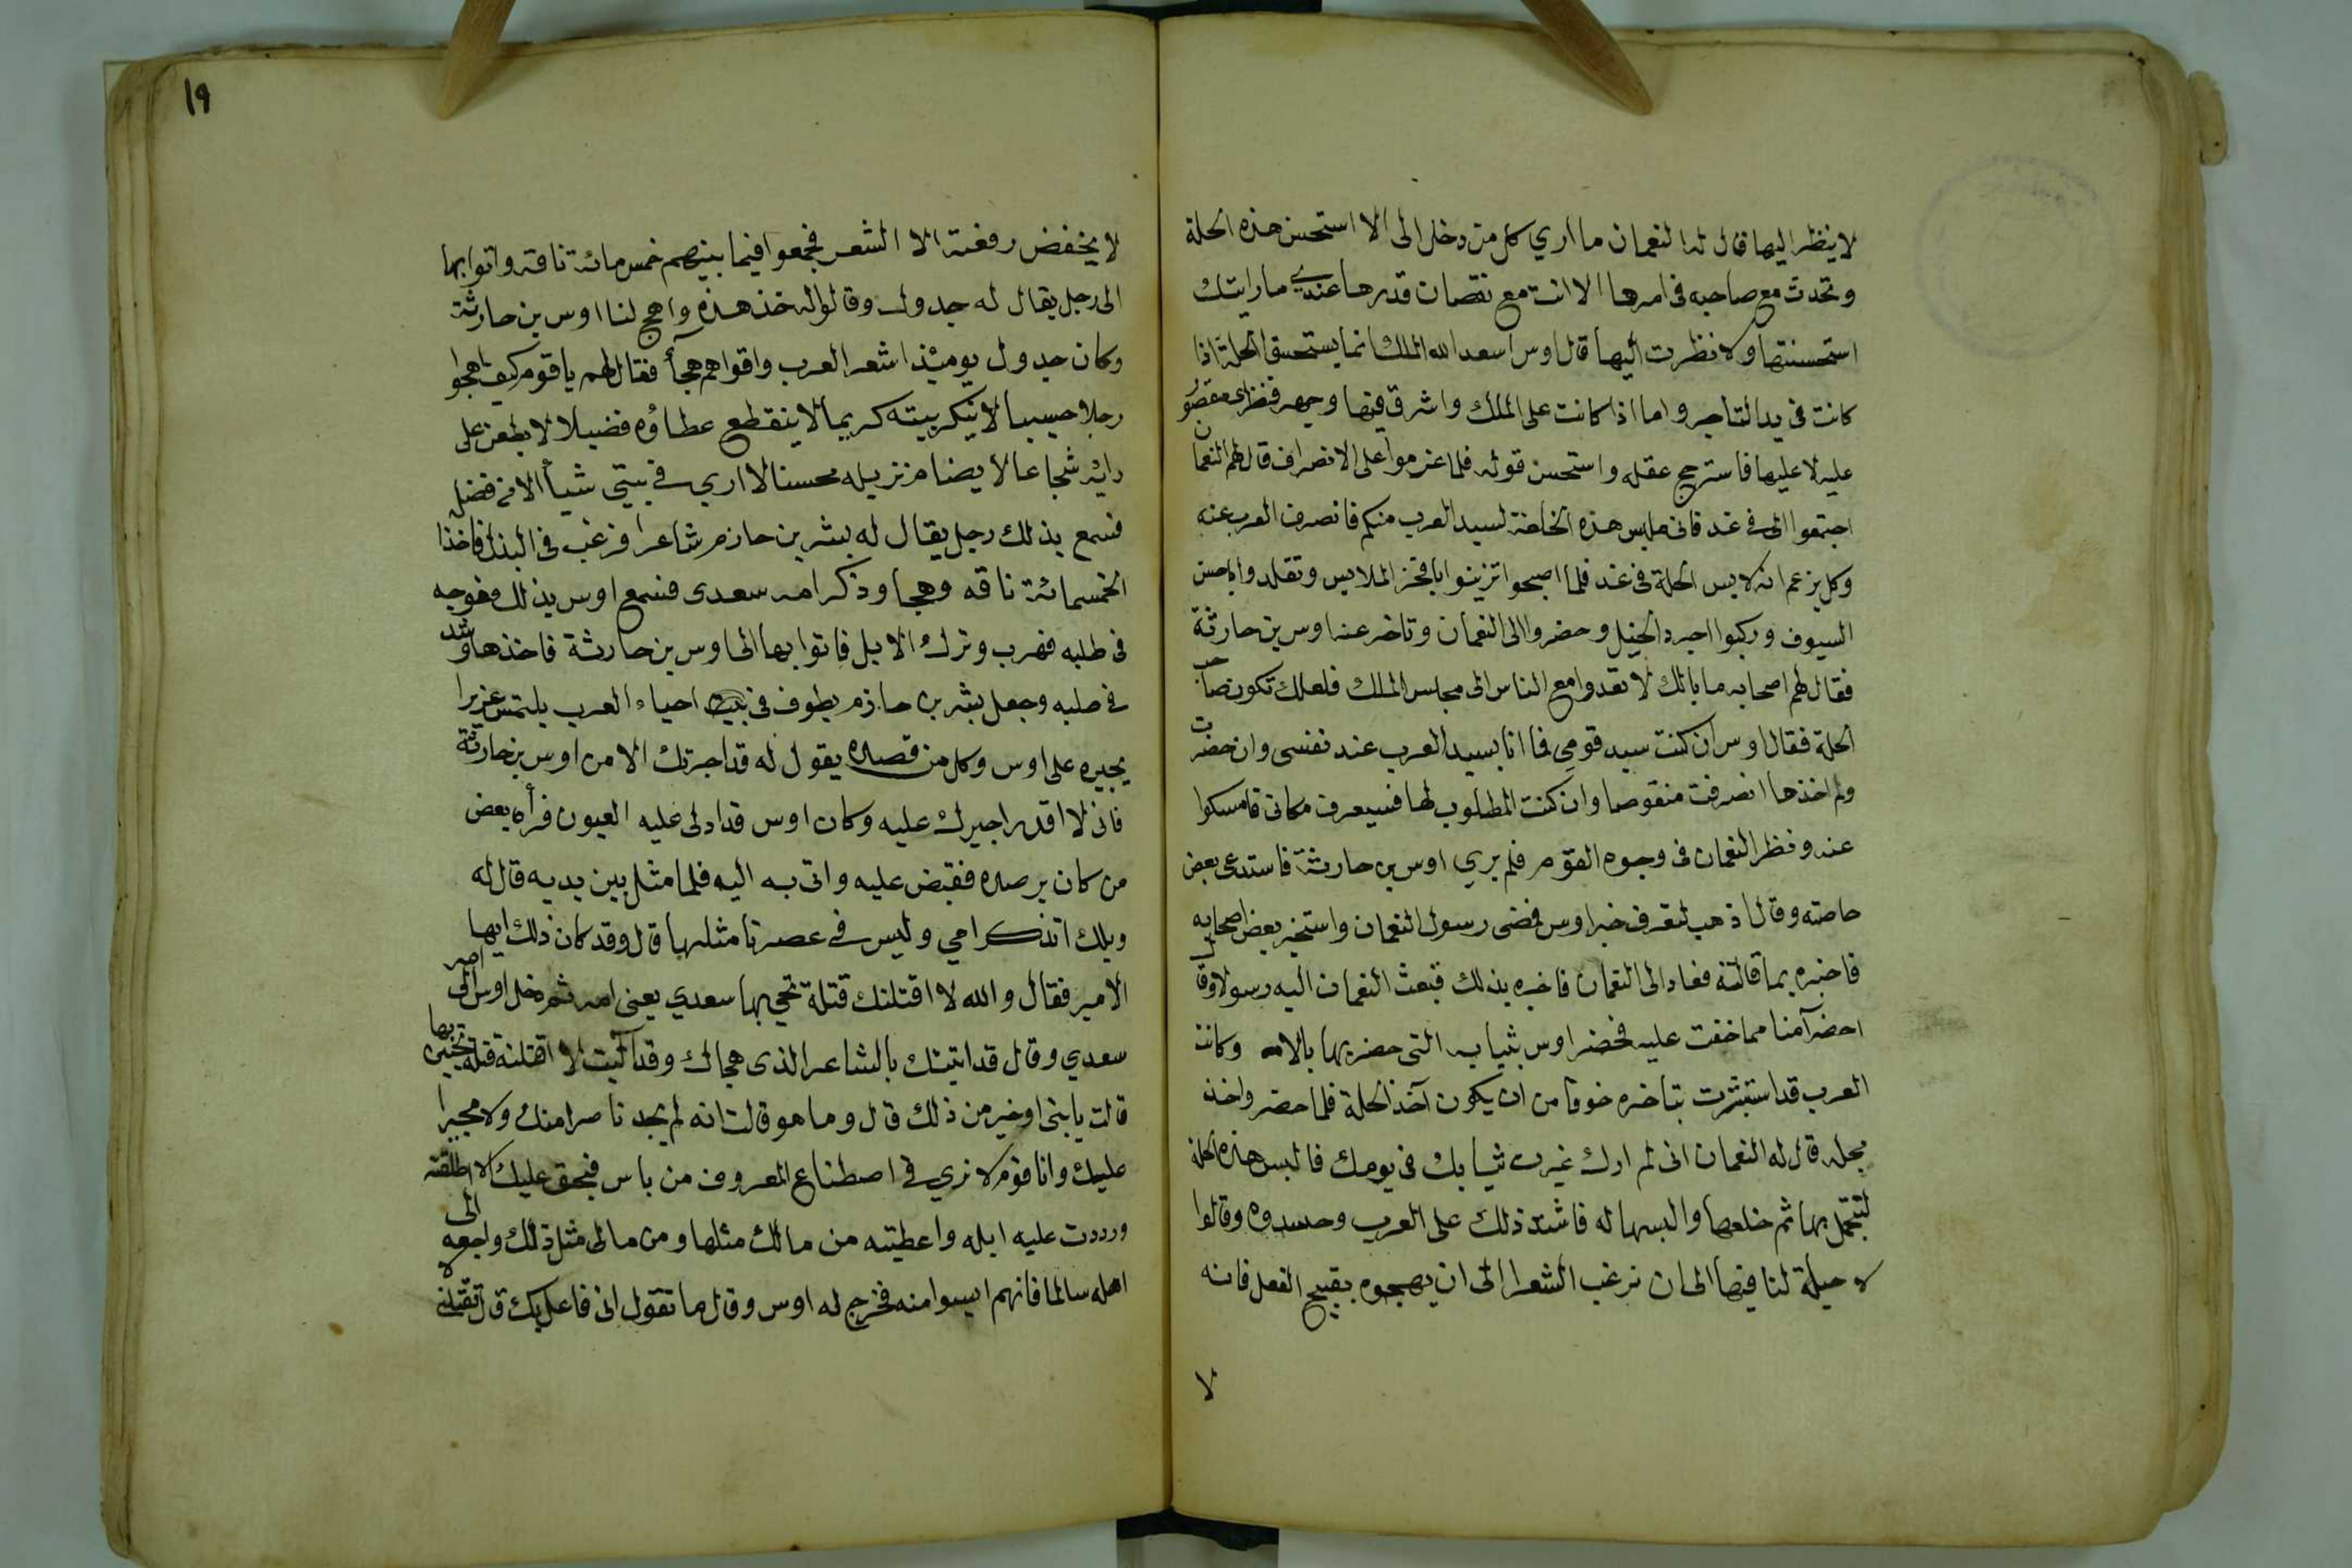 لا ينظر اليها قال له النعمان ما اري كل من دخل الى الا استحسن هذه الحلة
وتحدث مع صاحبه فى امرها الا انت مع نقصان قدرها عندي ما رايتك
استحسنتها ولا نظرت اليها قال اوس اسعد الله الملك انما يستحسن الحلة اذا
كانت فى يد التاجر واما اذا كانت على الملك واشرق فيها وجهه فنظرى مقصور
عليه لا عليها فاسترجح عقله واستحسن قوله فلما عزموا على الانصراف قال لهم النعمان
اجتمعوا الى فى غد فانى ملبس هذه الخلعة لسيد العرب منكم فانصرف العرب عنه
وكل يزعم انه لابس الحلة فى غد فلما اصبحوا تزينوا بافخر الملابس وتقلدوا باحسن
السيوف وركبوا اجود الخيل وحضروا الى النعمان وتاخر عنه اوس بن حارثة
فقال لهم اصحابه ما بالك لا تغدوا مع الناس الى مجلس الملك فلعلك تكون صاحب
الحلة فقال اوس ان كنت سيد قومي فما انا بسيد العرب عند نفسى وان حضرت
ولم اخذها انصرفت منقوصا وان كنت المطلوب لها فسيعرف مكانى فامسكوا
عنه ونظر النعمان فى وجوه القوم فلم يري اوس بن حارثة فاستدعى بعض
خاصته وقال اذهب لتعرف خبر اوس فمضى رسول النعمان واستخبر بعض اصحابه
فاخبره بما قالته فعاد الى النعمان فاخبره بذلك فبعث النعمان اليه رسولا وقال
احضر آمنا مما خفت عليه فحضر اوس بثيابه التى حضر بها بالامس وكانت
العرب قد استبشرت بتاخره خوفا من ان يكون آخذ الحلة فلما حضر واخذ
مجلسه قال له النعمان انى لم ارك غيرت ثيابك فى يومك فالبس هذه الحلة
لتتجمل بها ثم خلعها والبسها له فاشتد ذلك على العرب وحسدوه وقالوا
لا حيلة لنا فيها الى ان نرغب الشعرا الى ان يهجوه بقبيح الفعل فانه
لا
١٩
لا يخفض رفعته الا الشعر فجمعوا فيما بينهم خمس مائة ناقة واتوا بها
الى رجل يقال له جدول وقالوا له خذ هذه واهج لنا اوس بن حارثة
وكان جدول يوميئذ اشعر العرب واقواهم هجأ فقال لهم يا قوم كيف اهجوا
رجلا حسيبا لا ينكر بيته كريما لا ينقطع عطاؤه فضيلا لا يطعن على
رايه شجاعا لا يضام نزيله محسنا لا اري فى بيتي شيأ الا من فضله
فسمع بذلك رجل يقال له بشر بن حازم شاعرا فرغب فى البذل فاخذ
الخمسمائة ناقه وهجا وذكر امه سعدى فسمع اوس بذلك فوجه
فى طلبه فهرب وترك الابل فاتوا بها الى اوس بن حارثة فاخذها وشد
فى طلبه وجعل بشر بن حازم يطوف فى احياء العرب يلتمس عزيرا
يجيره على اوس وكل من قصده يقول له قد اجرتك الا من اوس بن حارثة
فانى لا اقدر اجيرك عليه وكان اوس قد ادلى عليه العيون فرأه بعض
من كان يرصده فقبض عليه واتى به اليه فلما مثل بين يديه قال له
ويلك اتذكر امي وليس فى عصرنا مثلها قال وقد كان ذلك ايها
الامير فقال والله لا اقتلنك قتلة تحي بها سعدي يعنى امه ثم دخل اوس الى امه
سعدي وقال قد اتيتك بالشاعر الذى هجاك وقد آليت لا اقتلنه قتلة تحيين بها
قالت يا بنى اوخير من ذلك قال وما هو قالت انه لم يجد ناصرا منك ولا مجيرا
عليك وانا قوم لا نري فى اصطناع المعروف من باس فبحق عليك الا اطلقته
ورددت عليه ابله واعطيته من مالك مثلها ومن مالى مثل ذلك وارجعه الى
اهله سالما فانهم ايسوا منه فخرج له اوس وقال ما تقول انى فاعل بك قال تقتلنى لا